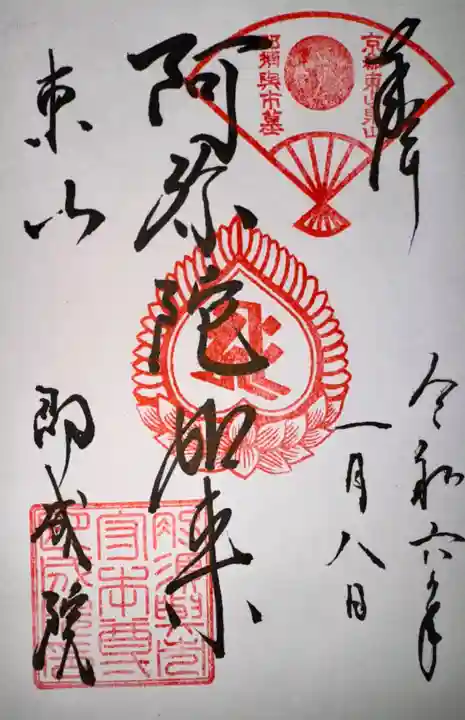 奉拝
京都東山泉山
那須與市墓
令和六年
一月八日
阿弥陀如来
東山
即成院